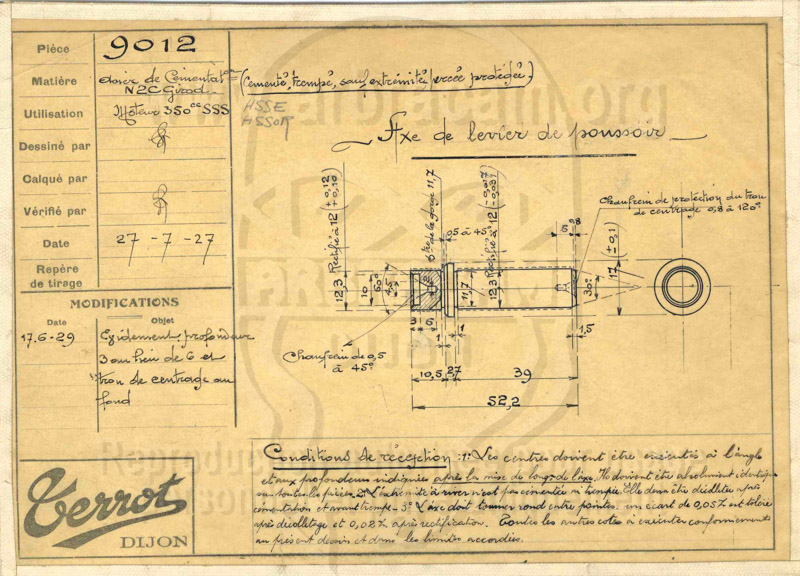 Pièce 9012
Matière Acier de Cémentat^on (Cémenté, trempé, sauf extrémité percée protégée)
N2C Girod
Utilisation Moteur 350cc SSS
HSSE
HSSOR
Axe de levier de poussoir
Dessiné par
Calqué par
Vérifié par
Date 27-7-27
Repère
de tirage
MODIFICATIONS
Date Objet
17.6-29 Evidement, profondeur
3 au lieu de 6 et
trou de centrage au
fond
12,3 Rectifié à 12 (+0,12 +0,10)
10
60°
7,5
φ de la gorge 11,7
0,5 à 45°
11,7
12,3 Rectifié à 12 (-0,017 -0,03)
6
0,8
Chanfrein de protection du trou
de centrage 0,8 à 120°
30°
17 (±0,1)
3 6
1 1
1,5
Chanfrein de 0,5
à 45°
10,5 2,7 39
52,2
Conditions de réception : 1° Les centres doivent être exécutés à l'angle
et aux profondeurs indiquées après la mise de long de l'axe. Ils doivent être absolument identiques
sur toutes les pièces. 2° L'extrémité à river n'est pas cimentée ni trempée. Elle devra être décolletée après
cémentation et avant trempe - 3° L'axe doit tourner rond entre pointes. un écart de 0,05% est toléré
après décolletage et 0,02% après rectification. Toutes les autres cotes à exécuter conformément
au présent dessin et dans les limites accordées.
Terrot
DIJON